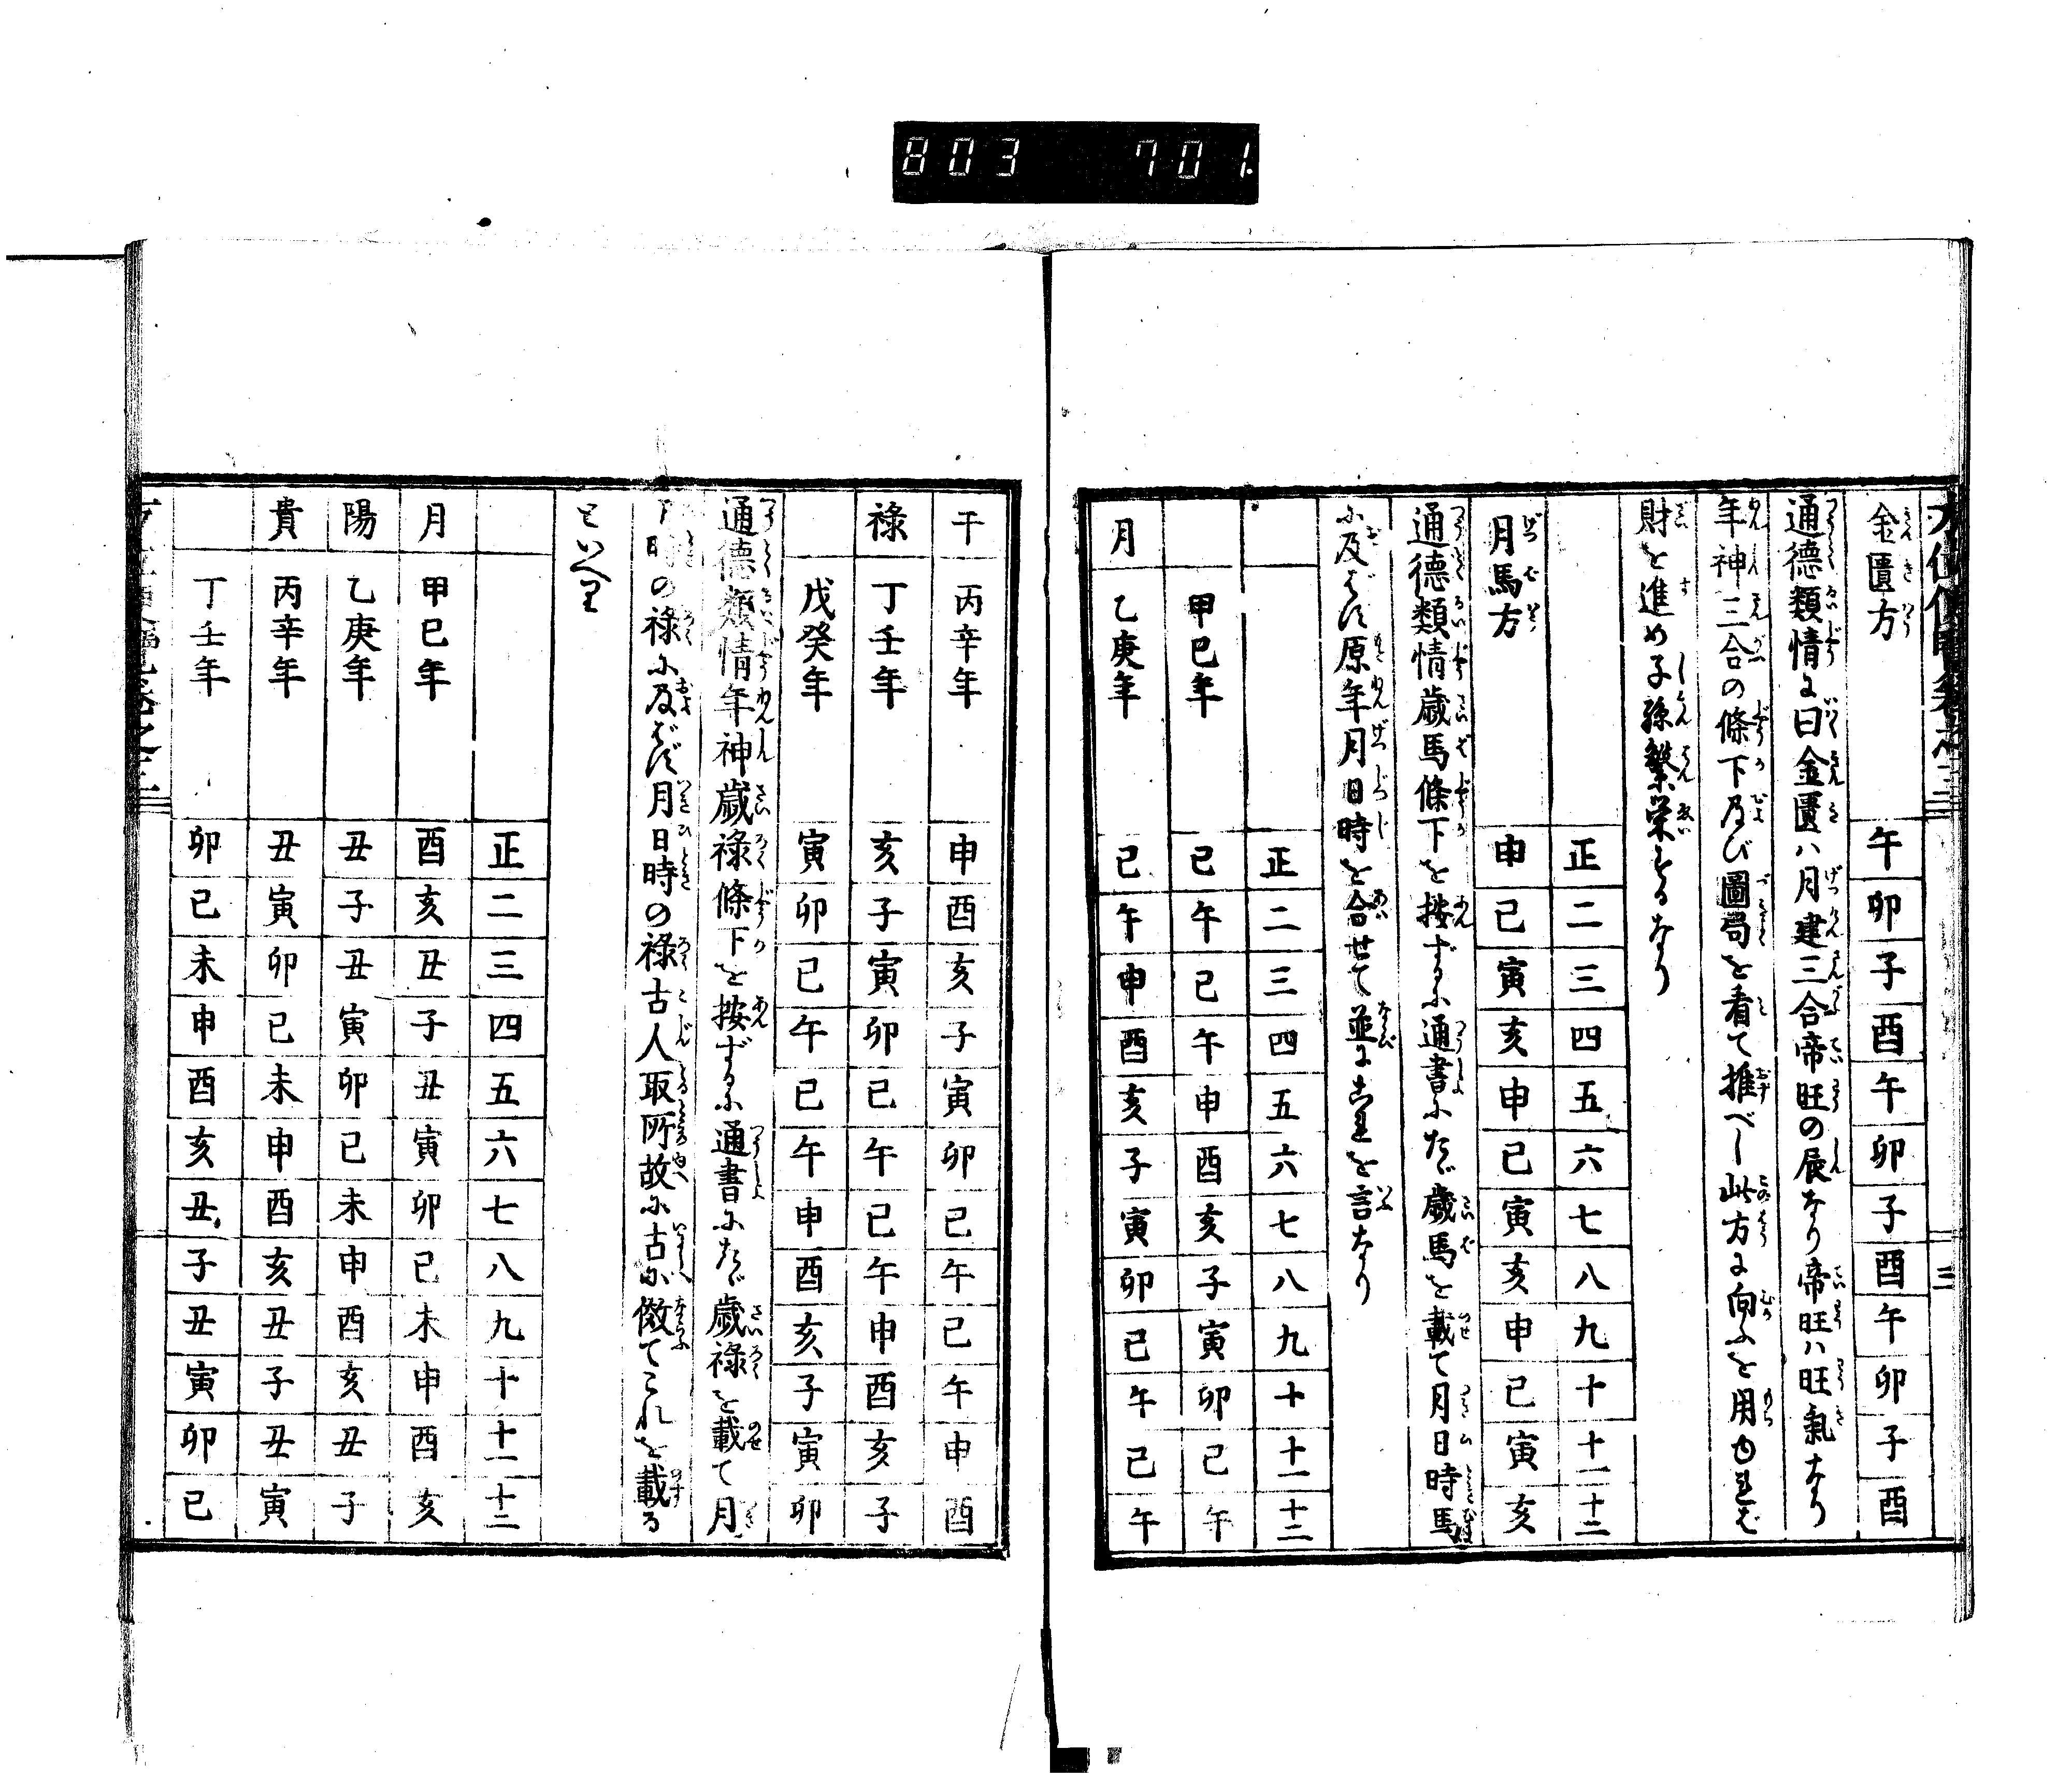 803 701.
金匱方 午 卯 子 酉 午 卯 子 酉 午 卯 子 酉
通德類情に曰金匱ハ月建三合帝旺の辰なり帝旺ハ旺氣なり
年神三合の條下及び圖局を看て推べし此方に向ふを用ゆれば
財を進め子孫繁栄するなり
正 二 三 四 五 六 七 八 九 十 十一 十二
月馬方 申 巳 寅 亥 申 巳 寅 亥 申 巳 寅 亥
通德類情歳馬條下を按ずるふ通書ふたゞ歳馬を載て月日時馬
ふ及ばず原年月日時を合せて並にこれを言なり
正 二 三 四 五 六 七 八 九 十 十一 十二
甲巳年 巳 午 巳 午 申 酉 亥 子 寅 卯 巳 午
月 乙庚年 巳 午 申 酉 亥 子 寅 卯 巳 午 巳 午
干 丙辛年 申 酉 亥 子 寅 卯 巳 午 巳 午 申 酉
祿 丁壬年 亥 子 寅 卯 巳 午 巳 午 申 酉 亥 子
戊癸年 寅 卯 巳 午 巳 午 申 酉 亥 子 寅 卯
通德類情年神歳祿條下を按ずるふ通書ふたゞ歳祿を載て月
時の祿ふ及ばず月日時の祿古人取所故ふ古ふ倣てこれを載る
といへり
正 二 三 四 五 六 七 八 九 十 十一 十二
月 甲巳年 酉 亥 丑 子 丑 寅 卯 巳 未 申 酉 亥
陽 乙庚年 丑 子 丑 寅 卯 巳 未 申 酉 亥 丑 子
貴 丙辛年 丑 寅 卯 巳 未 申 酉 亥 丑 子 丑 寅
丁壬年 卯 巳 未 申 酉 亥 丑 子 丑 寅 卯 巳